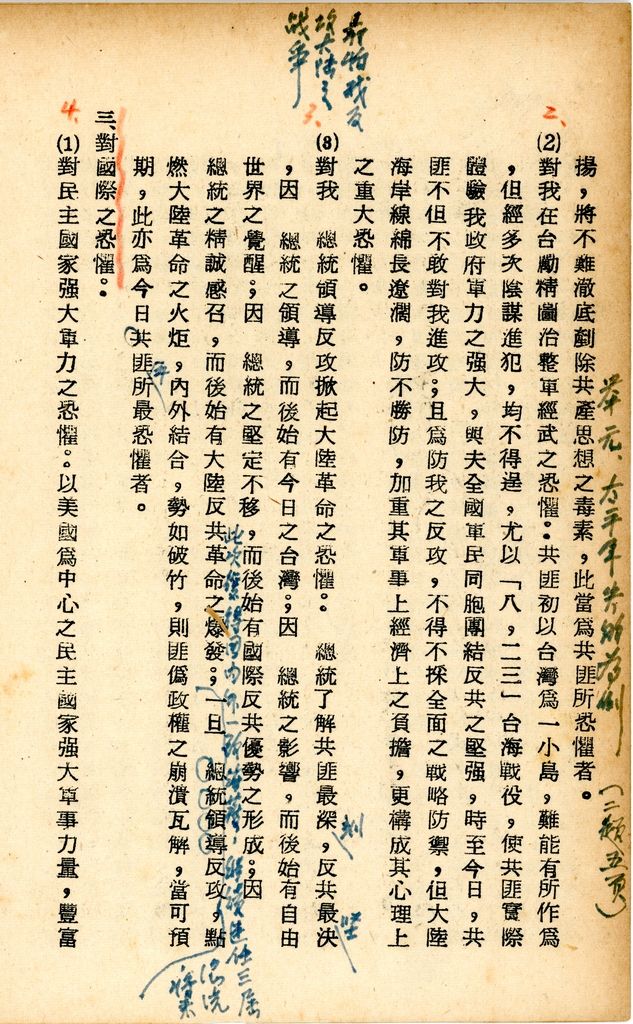 揚，將不難澈底剷除共產思想之毒素，此當爲共匪所恐懼者。
2.
(2)對我在台勵精圖治整軍經武之恐懼。共匪初以台灣爲一小島，難能有所作爲
，但經多次陰謀進犯，均不得逞，尤以「八，二三」台海戰役，使共匪實際
體驗我政府軍力之强大，與夫全國軍民同胞團結反共之堅强，時至今日，共
匪不但不敢對我進攻；且爲防我之反攻，不得不採全面之戰略防禦，但大陸
海岸線綿長遼濶，防不勝防，加重其軍事上經濟上之負擔，更構成其心理上
之重大恐懼。
3.
(3)對我　總統領導反攻掀起大陸革命之恐懼。　總統了解共匪最深，反共最決
，因　總統之領導，而後始有今日之台灣；因　總統之影響，而後始有自由
世界之覺醒；因　總統之堅定不移，而後始有國際反共優勢之形成；因
總統之精誠感召，而後始有大陸反共革命之爆發；一旦　總統領導反攻，點
燃大陸革命之火炬，內外結合，勢如破竹，則匪僞政權之崩潰瓦解，當可預
期，此亦爲今日共匪所最恐懼者。
三、對國際之恐懼。
4.
(1)對民主國家强大軍力之恐懼。以美國爲中心之民主國家强大軍事力量，豐富
最怕我反
攻大陸之
戰爭
(二頁五頁)
堅